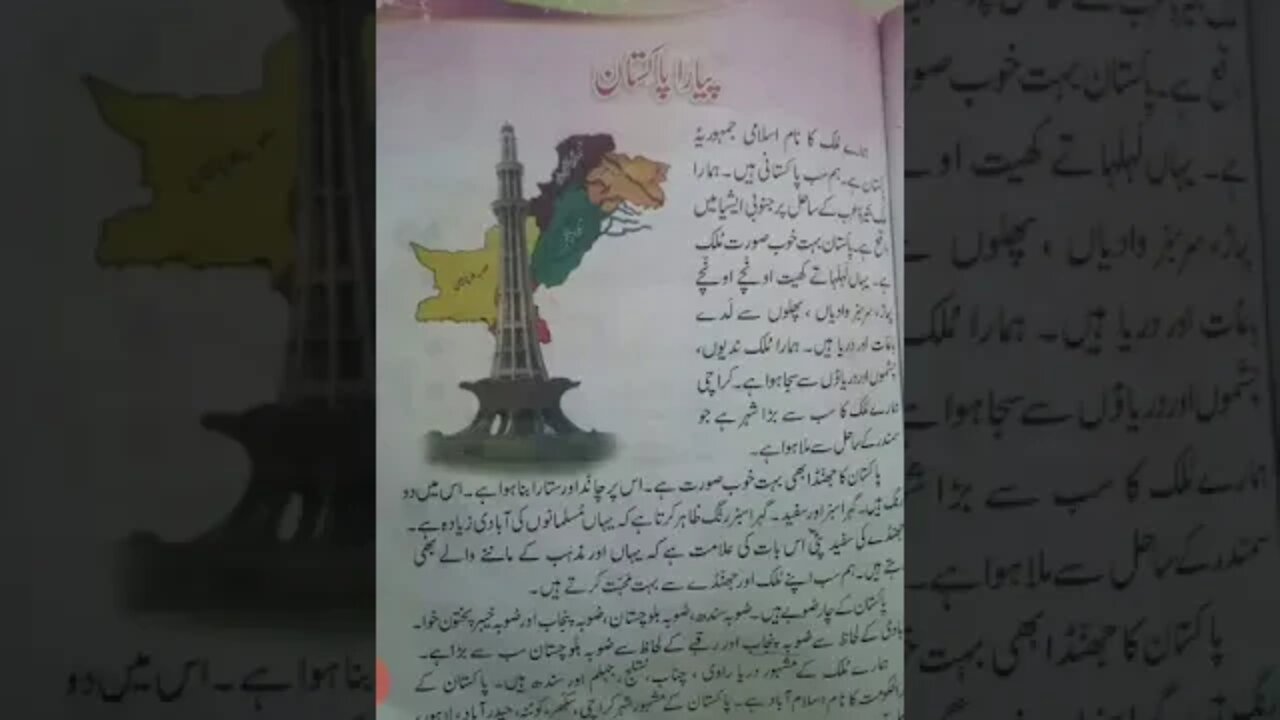 پیارا پاکستان
ہمارے ملک کا نام اسلامی جمہوریہ
پاکستان ہے۔ ہم سب پاکستانی ہیں۔ ہمارا
ملک بحیرۂ عرب کے ساحل پر جنوبی ایشیا میں
واقع ہے۔ پاکستان بہت خوب صورت ملک
ہے۔ یہاں لہلہاتے کھیت اونچے اونچے
پہاڑ، سرسبز وادیاں، پھلوں سے لدے
باغات اور دریا ہیں۔ ہمارا ملک ندیوں،
چشموں اور دریاؤں سے سجا ہوا ہے۔ کراچی
ہمارے ملک کا سب سے بڑا شہر ہے جو
سمندر کے ساحل سے ملا ہوا ہے۔
پاکستان کا جھنڈا بھی بہت خوب صورت ہے۔ اس پر چاند اور ستارا بنا ہوا ہے۔ اس میں دو
رنگ ہیں۔ گہرا سبز اور سفید۔ گہرا سبز رنگ ظاہر کرتا ہے کہ یہاں مسلمانوں کی آبادی زیادہ ہے۔
جھنڈے کی سفید پٹی اس بات کی علامت ہے کہ یہاں اور مذہب کے ماننے والے بھی
بستے ہیں۔ ہم سب اپنے ملک اور جھنڈے سے بہت محبت کرتے ہیں۔
پاکستان کے چار صوبے ہیں۔ صوبہ سندھ، صوبہ بلوچستان، صوبہ پنجاب اور صوبہ خیبر پختون خوا۔
آبادی کے لحاظ سے صوبہ پنجاب اور رقبے کے لحاظ سے صوبہ بلوچستان سب سے بڑا ہے۔
ہمارے ملک کے مشہور دریا راوی، چناب، ستلج، جہلم اور سندھ ہیں۔ پاکستان کے
دارالحکومت کا نام اسلام آباد ہے۔ پاکستان کے مشہور شہر کراچی، سکھر، کوئٹہ، حیدرآباد، لاہور،